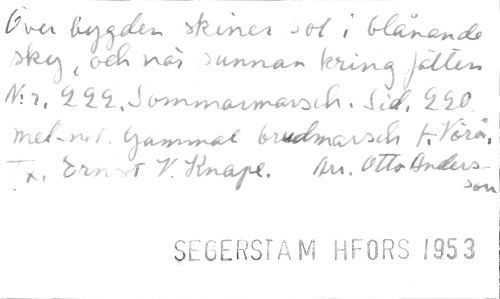 Över bygden skiner sol i blånande
sky, och när sunnan kring fälten
N:r. 222. Sommarmarsch. Sid. 220.
mel-not. Gammal brudmarsch f. Vörå.
Tx. Ernst V. Knape. Arr. Otto Anders-
son
SEGERSTAM HFORS 1953